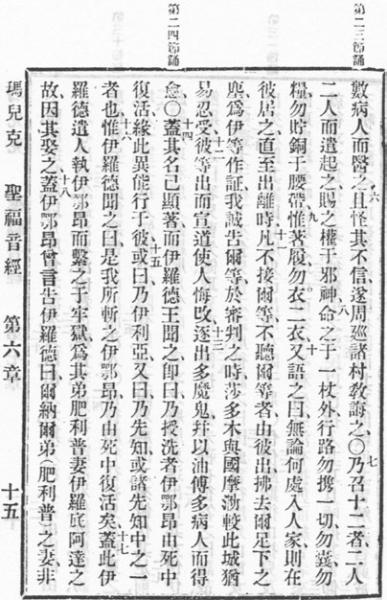 第二三節誦
第二四節誦
數病人而醫之六且怪其不信遂周巡諸村敎誨之○七乃召十二者二人
二人而遣起之賜之權于邪神八命之于一杖外行路勿攜一切勿囊勿
糧勿貯銅于腰帶九惟著履勿衣二衣十又語之曰無論何處入人家則在
彼居之直至出離時十一凡不接爾等不聽爾等者由彼出拂去爾足下之
塵爲伊等作証我誠吿爾等於審判之時莎多木與國摩渤較此城猶
易忍受十二彼等出而宣道使人悔攺十三逐出多魔鬼幷以油傅多病人而得
愈○十四蓋其名已顯著而伊羅德王聞之卽曰乃授洗者伊鄂昻由死中
復活緣此異能行于彼十五或曰乃伊利亞又曰乃先知或諸先知中之一
者也十六惟伊羅德聞之曰是我所斬之伊鄂昻乃由死中復活矣十七蓋此伊
羅德遣人執伊鄂昻而繫之于牢獄爲其弟肥利普妻伊羅底阿達之
故因其娶之十八蓋伊鄂昻曾言吿伊羅德曰爾納爾弟(肥利普)之妻非
瑪兒克 聖福音經 第六章 十五